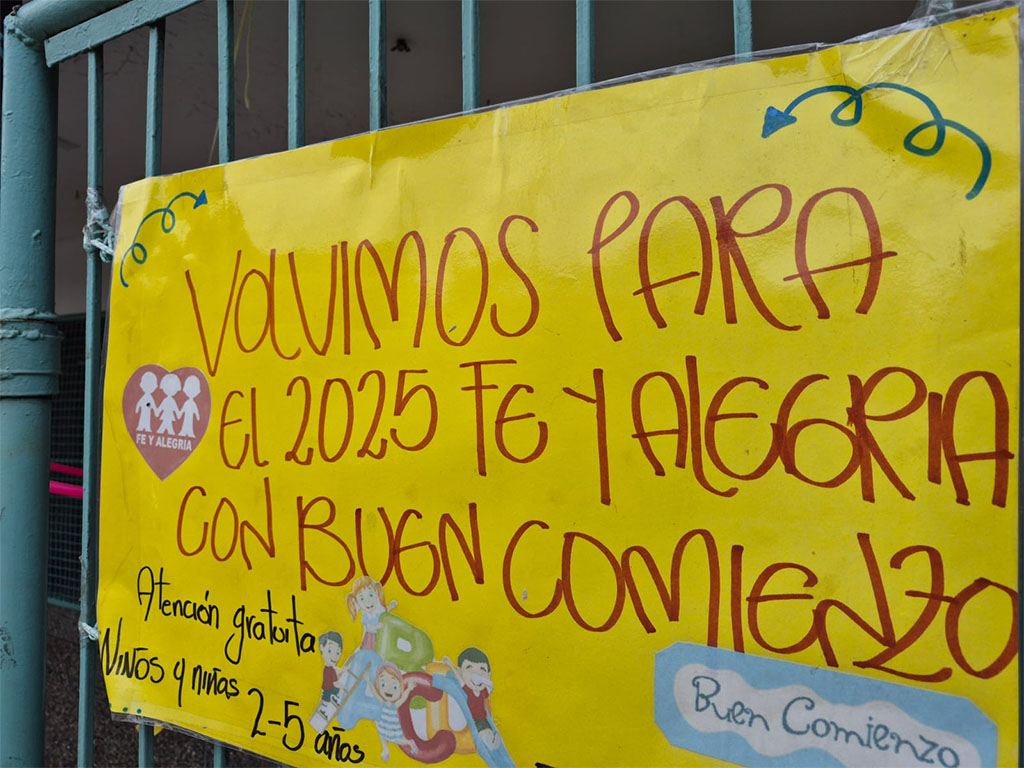 VOLVIMOS PARA
EL 2025 FE Y ALEGRIA
CON BUEN COMIENZO
FE Y ALEGRIA
Atención gratuita
Niños y niñas
2-5 años
Buen Comienzo